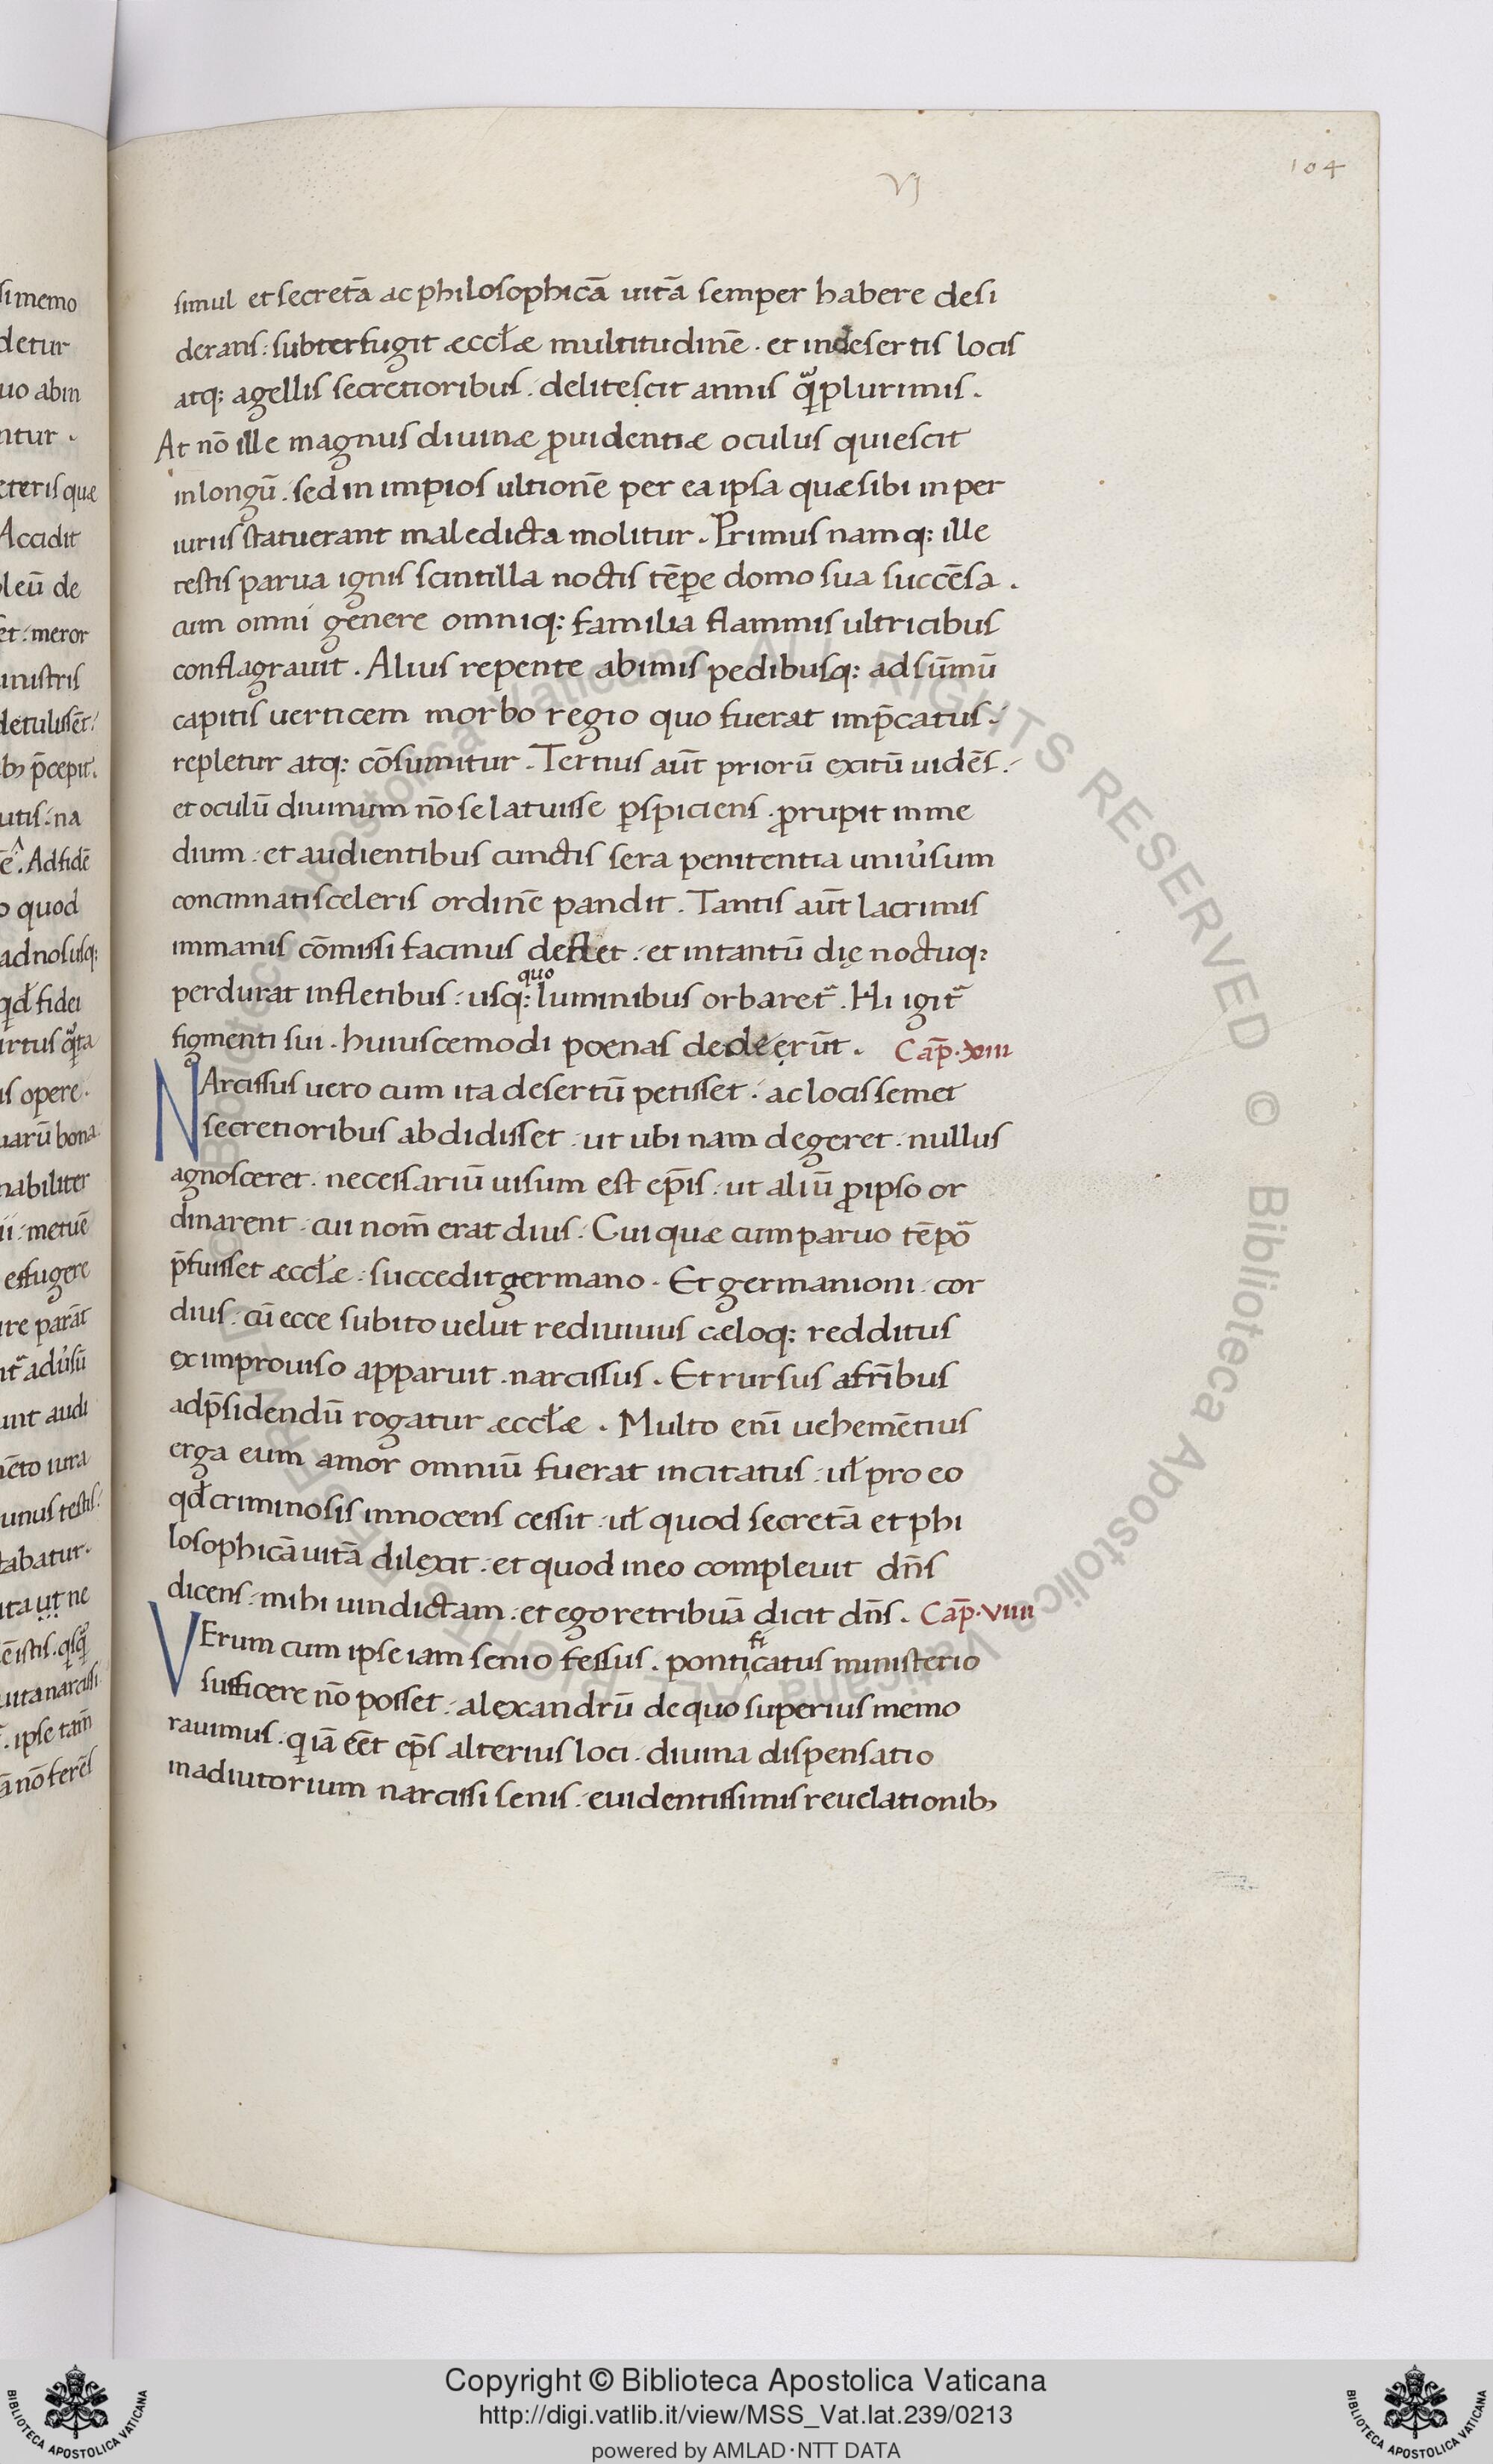 104
VI
simul et secretā ac philosophicā uitā semper habere desi
derans: subterfugit æccłæ multitudinē. et indesertis locis
atq: agellis secretioribus. delitescit annis quāplurimis.
At nō ille magnus diuinæ ꝓuidentiæ oculus quiescit
inlongū. sed in impios ultionē per ea ipsa quæ sibi in per
iuriis statuerant maledicta molitur. Primus namq: ille
testis parua ignis scintilla noctis tēpe domo sua succēsa.
cum omni genere omniq: familia flammis ultricibus
conflagrauit. Alius repente abimis pedibusq: adsūmū
capitis uerticem morbo regio quo fuerat imp̄catus.
repletur atq: cōsumitur. Tertius aūt priorū exitū uidēs.
et oculū diuinum nō se latuisse ꝑspiciens. ꝓrupit in me
dium. et audientibus cunctis sera penitentia uniu̓sum
concinnati sceleris ordinē pandit. Tantis aūt lacrimis
immanis cōmissi facinus deflet. et intantū die noctuq:
quo
perdurat infletibus. usq: luminibus orbaret᷑. Hi igit᷑
figmenti sui. huiuscemodi poenas dederūt. Cap̄. XIII
NArcissus uero cum ita desertū petisset. ac locis semet
secretioribus abdidisset. ut ubi nam degeret. nullus
agnosceret. necessariū uisum est ep̄is. ut aliū ꝓipso or
dinarent. cui nom̄ erat dius. Cui quæ cum paruo tēpo᷑
p̄fuisset æccłæ. succedit germano. Et germanioni. cor
dius. cū ecce subito uelut rediuiuus cæloq: redditus
ex improuiso apparuit. narcissus. Et rursus afrībus
adp̄sidendū rogatur æccłæ. Multo eni̅ uehemētius
erga eum amor omniū fuerat incitatus. uł pro eo
qđ criminosis innocens cessit. uł quod secretā et phi
losophicā uitā dilexit. et quod in eo compleuit dn̄s
dicens. mihi uindictam. et ego retribuā dicit dn̄s. Cap̄. VIIII
VErum cum ipse iam senio fessus. ponticatus ministerio
fi
sufficere nō posset. alexandrū de quo superius memo
rauimus. q iā eēt ep̄s alterius loci. diuina dispensatio
inadiutorium narcissi senis. euidentissimis reuelationibꝫ
Copyright © Biblioteca Apostolica Vaticana
http://digi.vatlib.it/view/MSS_Vat.lat.239/0213
powered by AMLAD·NTT DATA
BIBLIOTECA APOSTOLICA VATICANA
BIBLIOTECA APOSTOLICA VATICANA